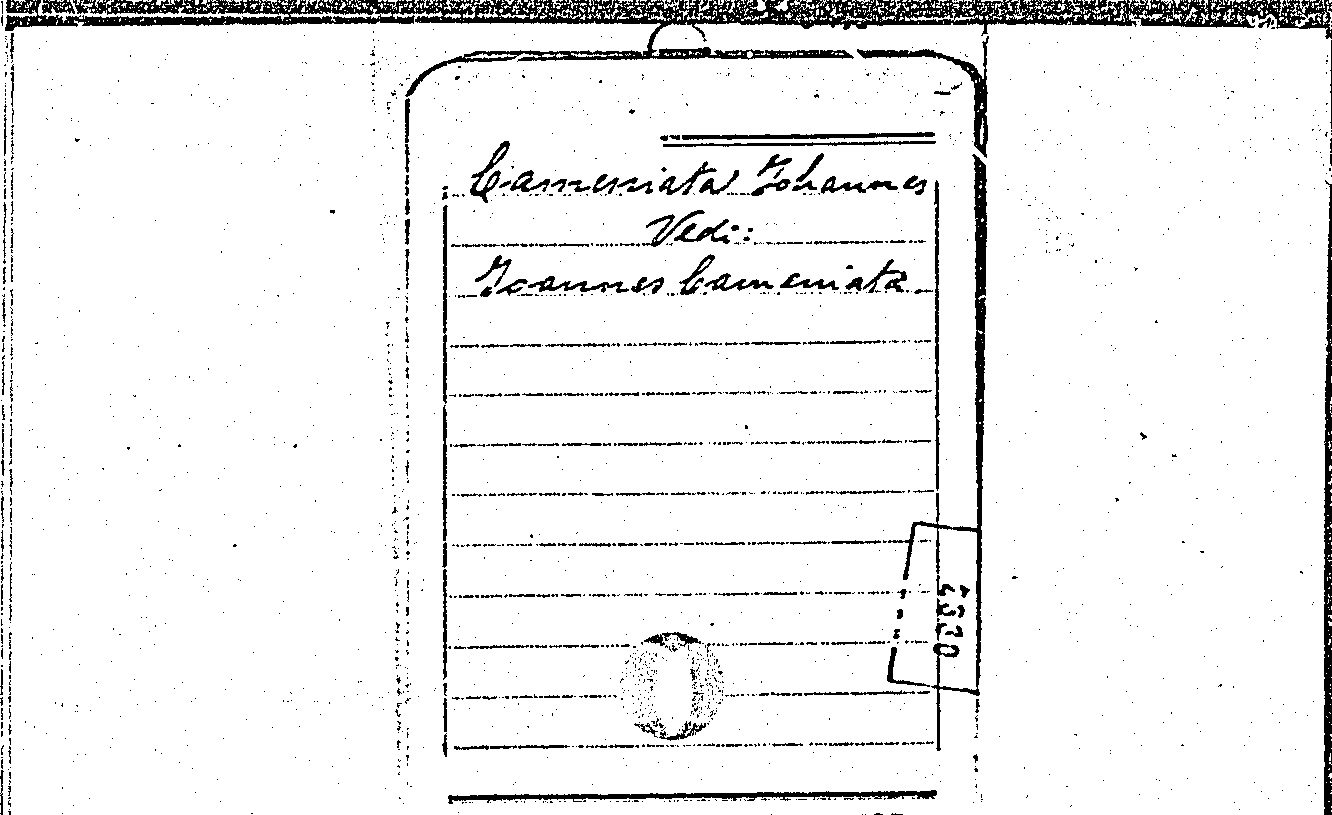 Cameniata Johannes
Vedi:
Ioannes Cameniata
4330